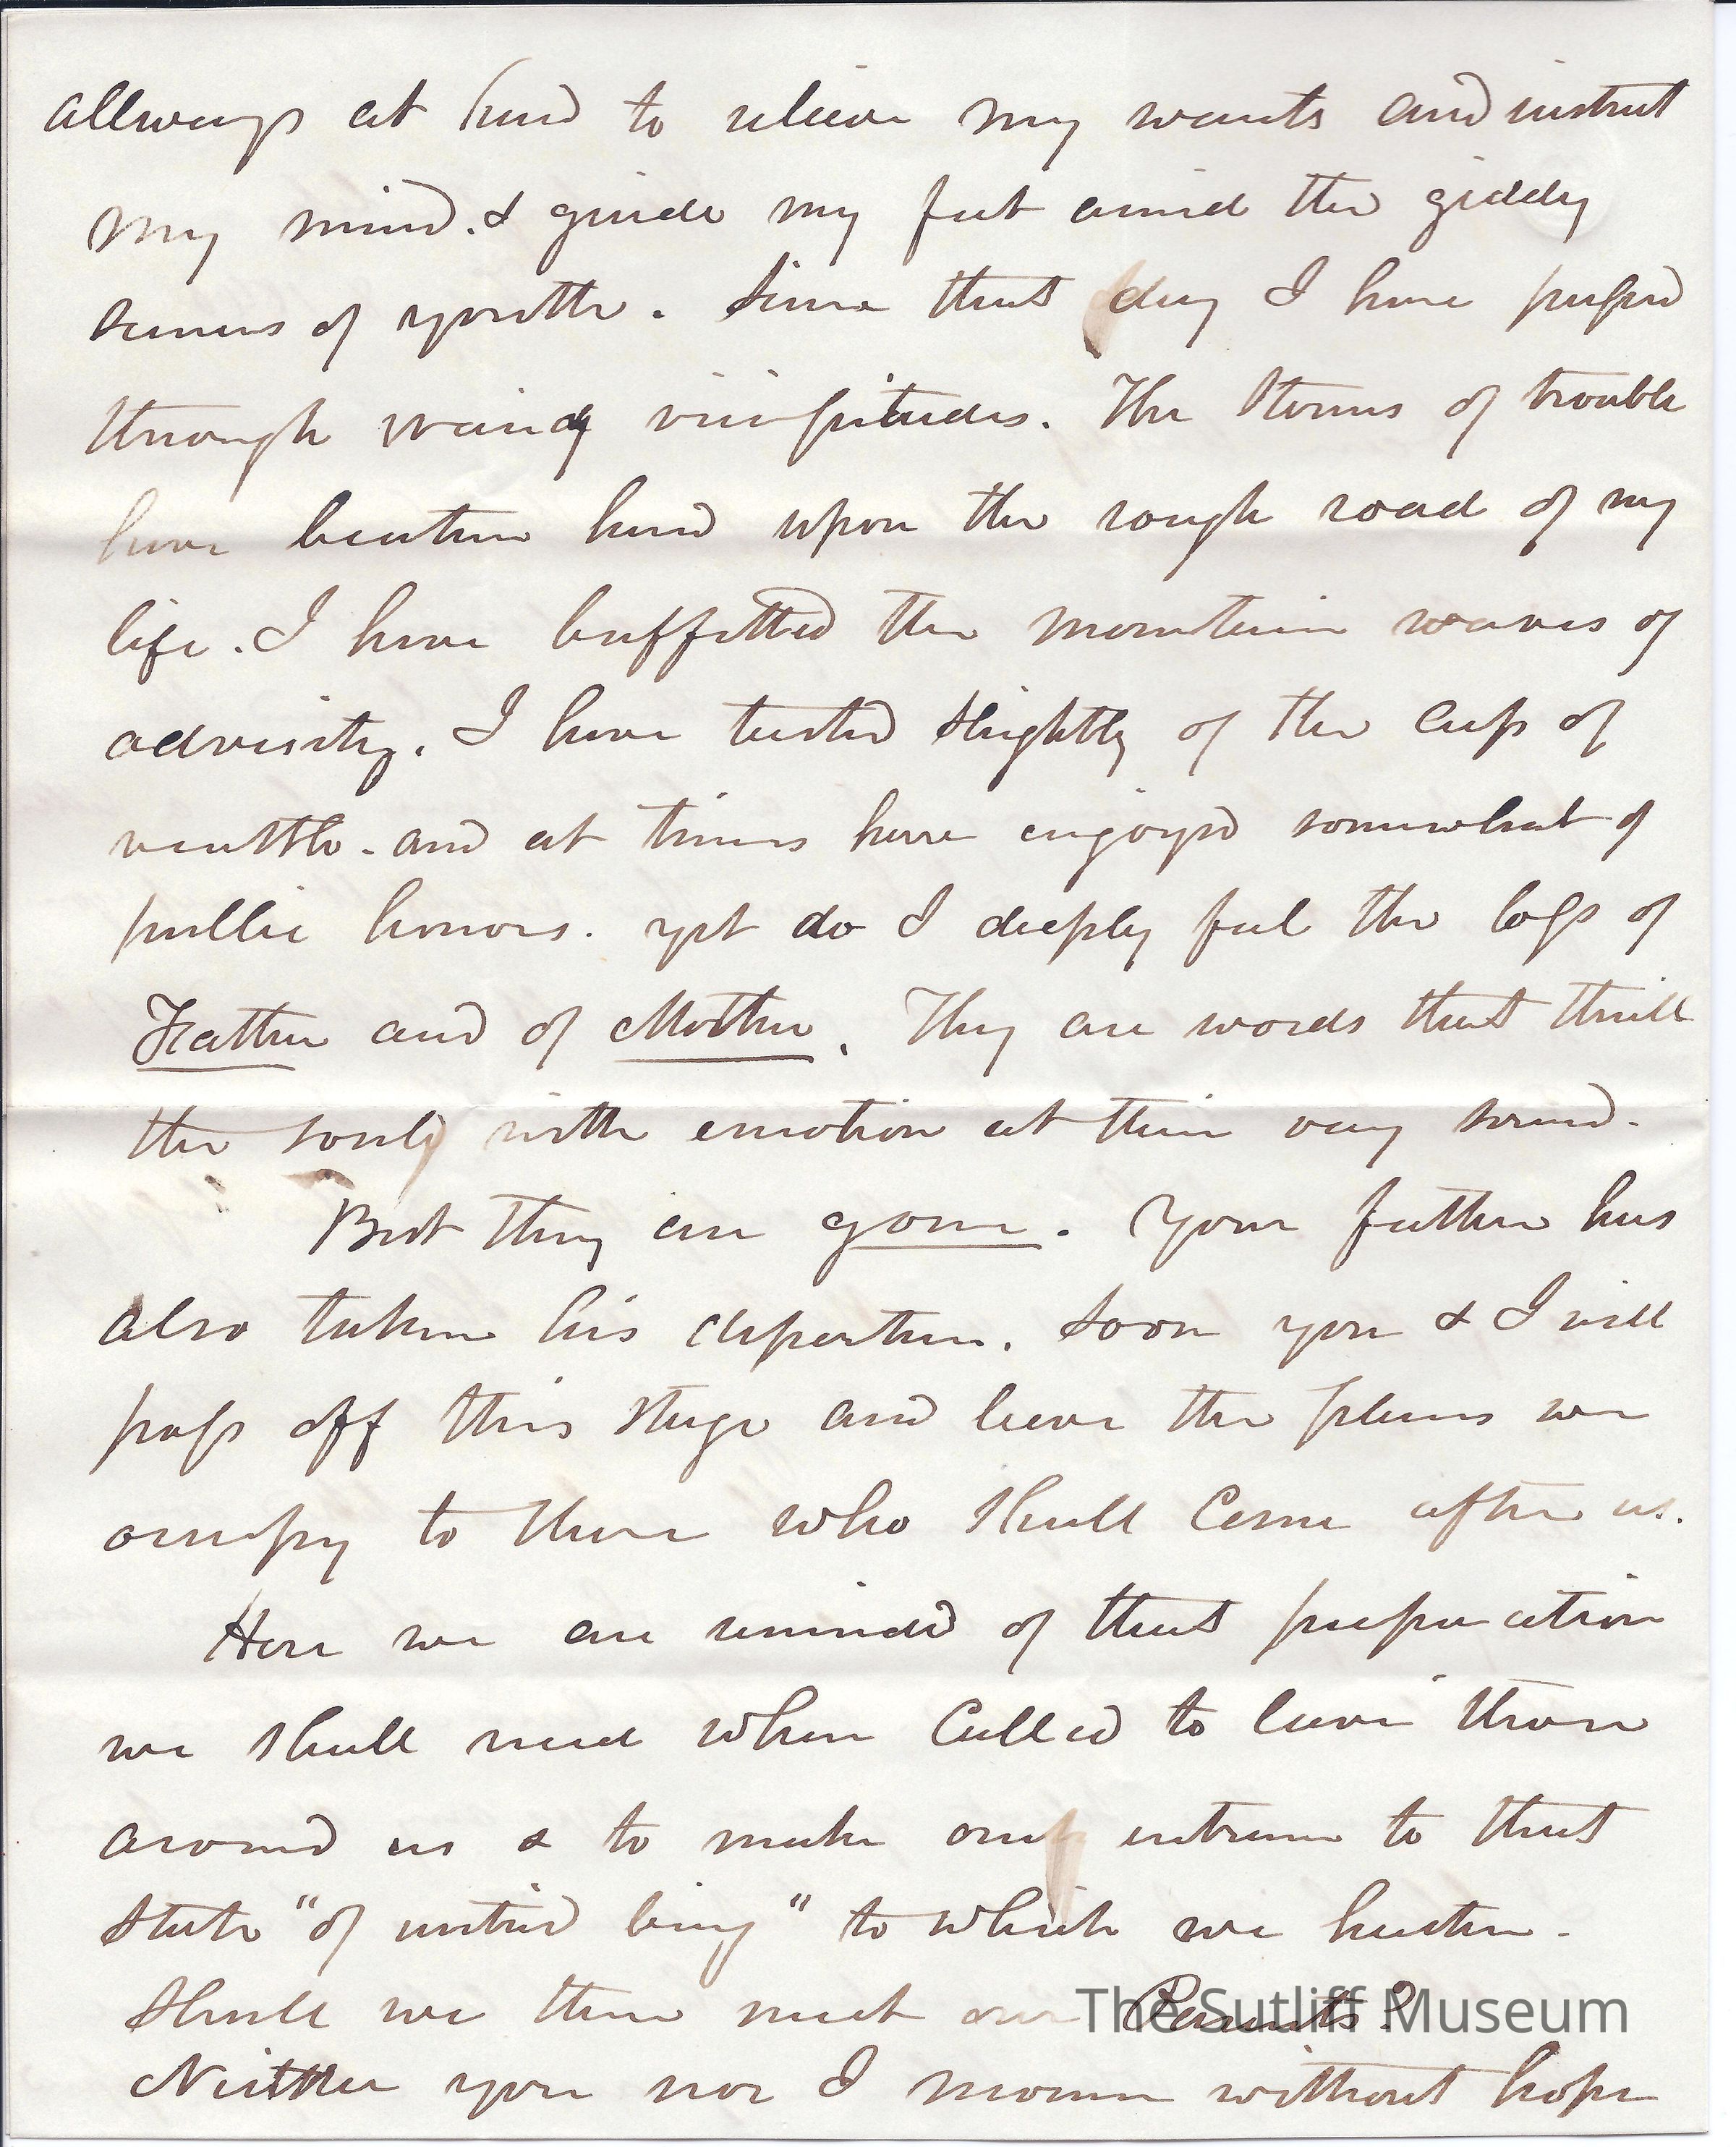 allways at hand to relieve my wants and instruct
my mind. & guide my feet amid the giddy
scenes of youth. Since that day I have passed
through many vicissitudes. The storms of trouble
have beaten hard upon the rough road of my
life. I have buffetted the mountain waves of
adversity. I have tasted slightly of the cup of
wealth. and at times have enjoyed somewhat of
public honors. yet do I deeply feel the loss of
Father and of Mother. They are words that thrill
the soul with emotion at their very sound.
But they are gone. Your father has
also taken his departure. Soon you & I will
pass off this stage and leave the places we
occupy to those who shall come after us.
Here we are reminded of that preparation
we shall need when called to leave those
around us & to make our entrance to that
state "of untried being" to which we hasten.
Shall we then meet our Parents?
Neither you nor I mourn without hope
The Sutliff Museum